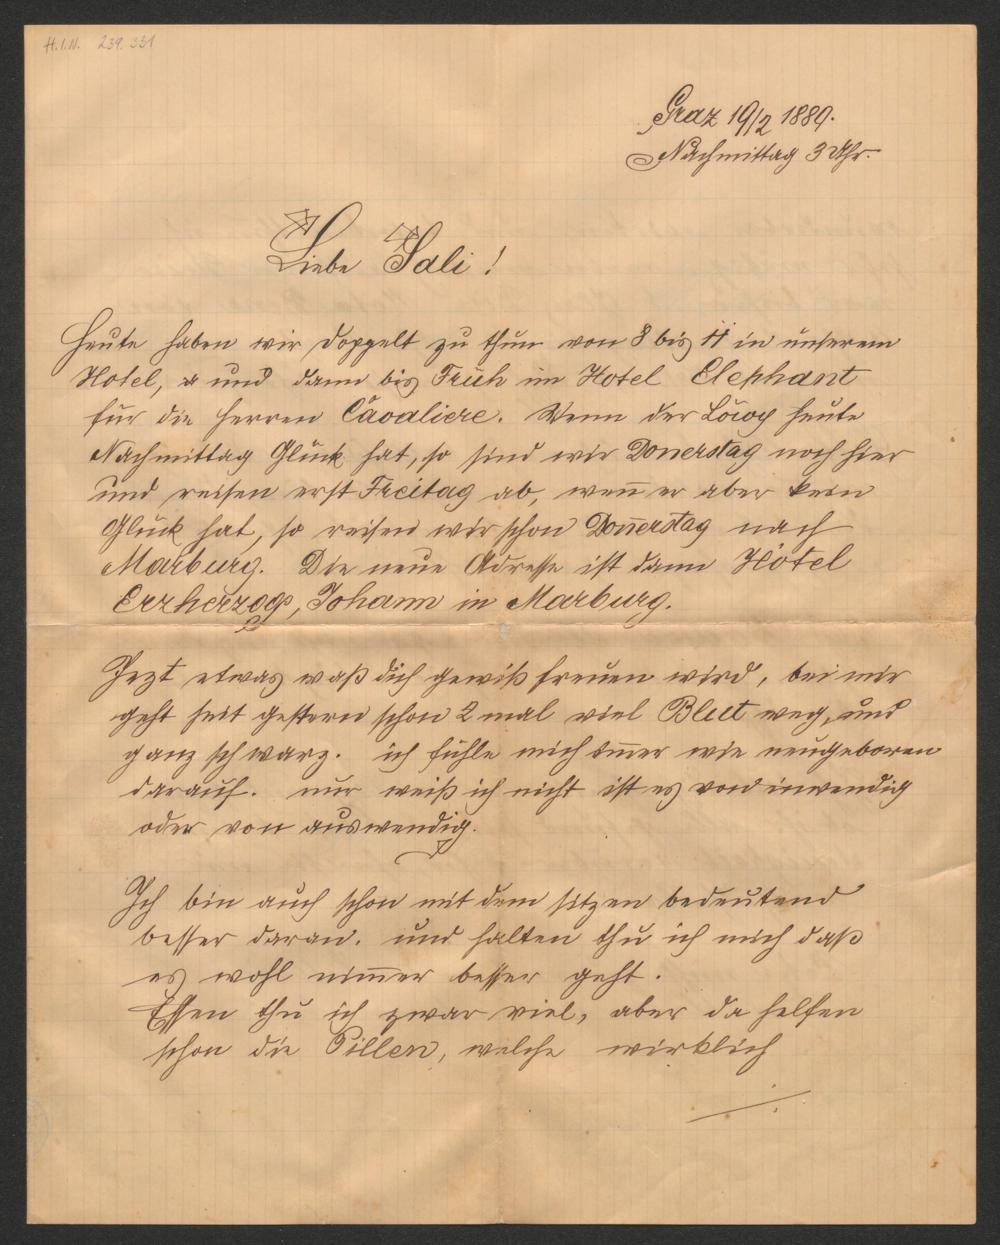 H.I.N. 239.331
Graz 19/2 1889.
Nachmittag 3 Uhr.
Liebe Sali!
Heute haben wir doppelt zu thun von 8 bis 11 in unserem
Hotel, und dann bis Früh im Hotel Elephant
für die Herren Cavaliere. Wenn der Löwy heute
Nachmittag Glück hat, so sind wir Donerstag noch hier
und reisen erst Freitag ab, wen̄ er aber kein
Glück hat, so reisen wir schon Don̄erstag nach
Marburg. Die neue Adresse ist dann Hôtel
Erzherzog, Johann in Marburg.
Jezt etwas waß dich gewiß freuen wird, bei mir
geht seit gestern schon 2 mal viel Blut weg, und
ganz schwarz. ich fühle mich im̄er wie neugeboren
darauf. nur weiß ich nicht ist es von inwendig
oder von auswendig.
Ich bin auch schon mit dem sitzen bedeutend
besser daran. und halten thu ich mich daß
es wohl nim̄er besser geht.
Essen thu ich zwar viel, aber da helfen
schon die Pillen, welche wirklich